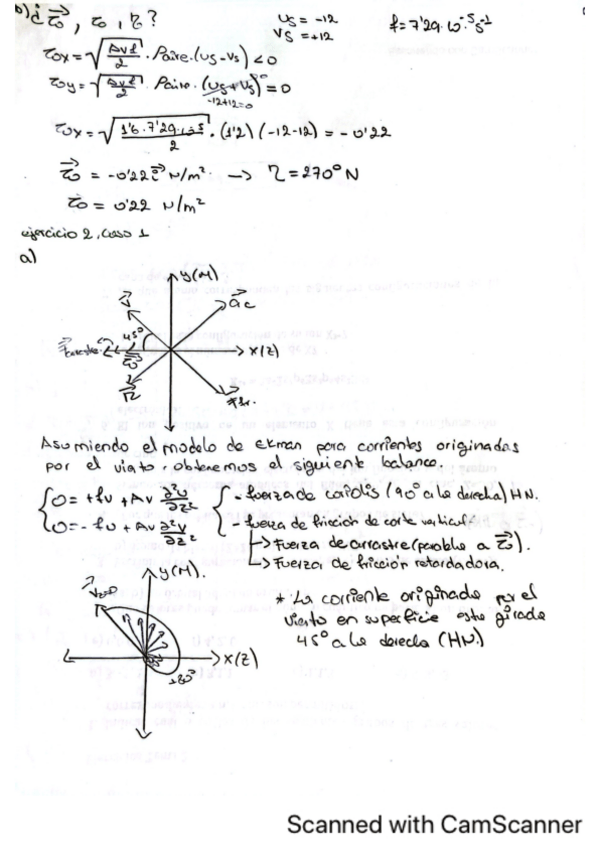 b) ¿ τ₀, τ₀, η?
us = -12
vs = +12
f = 7'29·10⁻⁵ s⁻¹
τ₀x = √(Avf/2) · ρaire · (us - vs) < 0
τ₀y = √(Avf/2) · ρaire · (us + vs) = 0
-12+12=0
τ₀x = √(1'6·7'29·10⁻⁵/2) · (1'2) (-12-12) = -0'22
τ₀ = -0'22 i N/m² → η = 270° N
τ₀ = 0'22 N/m²
ejercicio 2, caso 1
a)
y(M)
V
ac
45°
Farrastre
τ₀
x(Z)
R
Fcor.
Asumiendo el modelo de ekman para corrientes originadas
por el viento, obtenemos el siguiente balance.
0 = +fv + Av ∂²u/∂z²
0 = -fu + Av ∂²v/∂z²
- fuerza de coriolis (90° a la derecha) HN.
- fuerza de fricción de corte vertical
→ Fuerza de arrastre (paralela a τ₀).
→ Fuerza de fricción retardadora.
y(M).
Vz=0
x(Z)
* La corriente originada por el
viento en superficie esta girada
45° a la derecha (HN)
Scanned with CamScanner